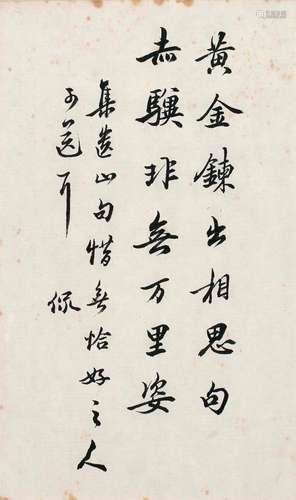 黄金鍊出相思句
赤驥非無万里姿
集遺山句惜無恰好之人
可送耳